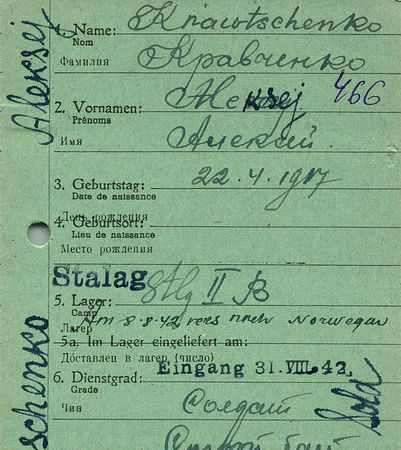 1. Name: Knawtschenko
Nom
Фамилия Кравченко
2. Vornamen: Aleksej 466
Prénoms
Имя Алексей.
3. Geburtstag: 22.4.1917
Date de naissance
День рождения
4. Geburtsort:
Lieu de naissance
Место рождения
Stalag
5. Lager: Stlg II B
Camp
Am 8-8-42 vers nach Norwegen
Лагер
5a. Im Lager eingeliefert am:
Доставлен в лагер (число)
Eingang 31.VIII.42.
6. Dienstgrad:
Grade
Чин Солдат
Sold
Aleksej
schenko